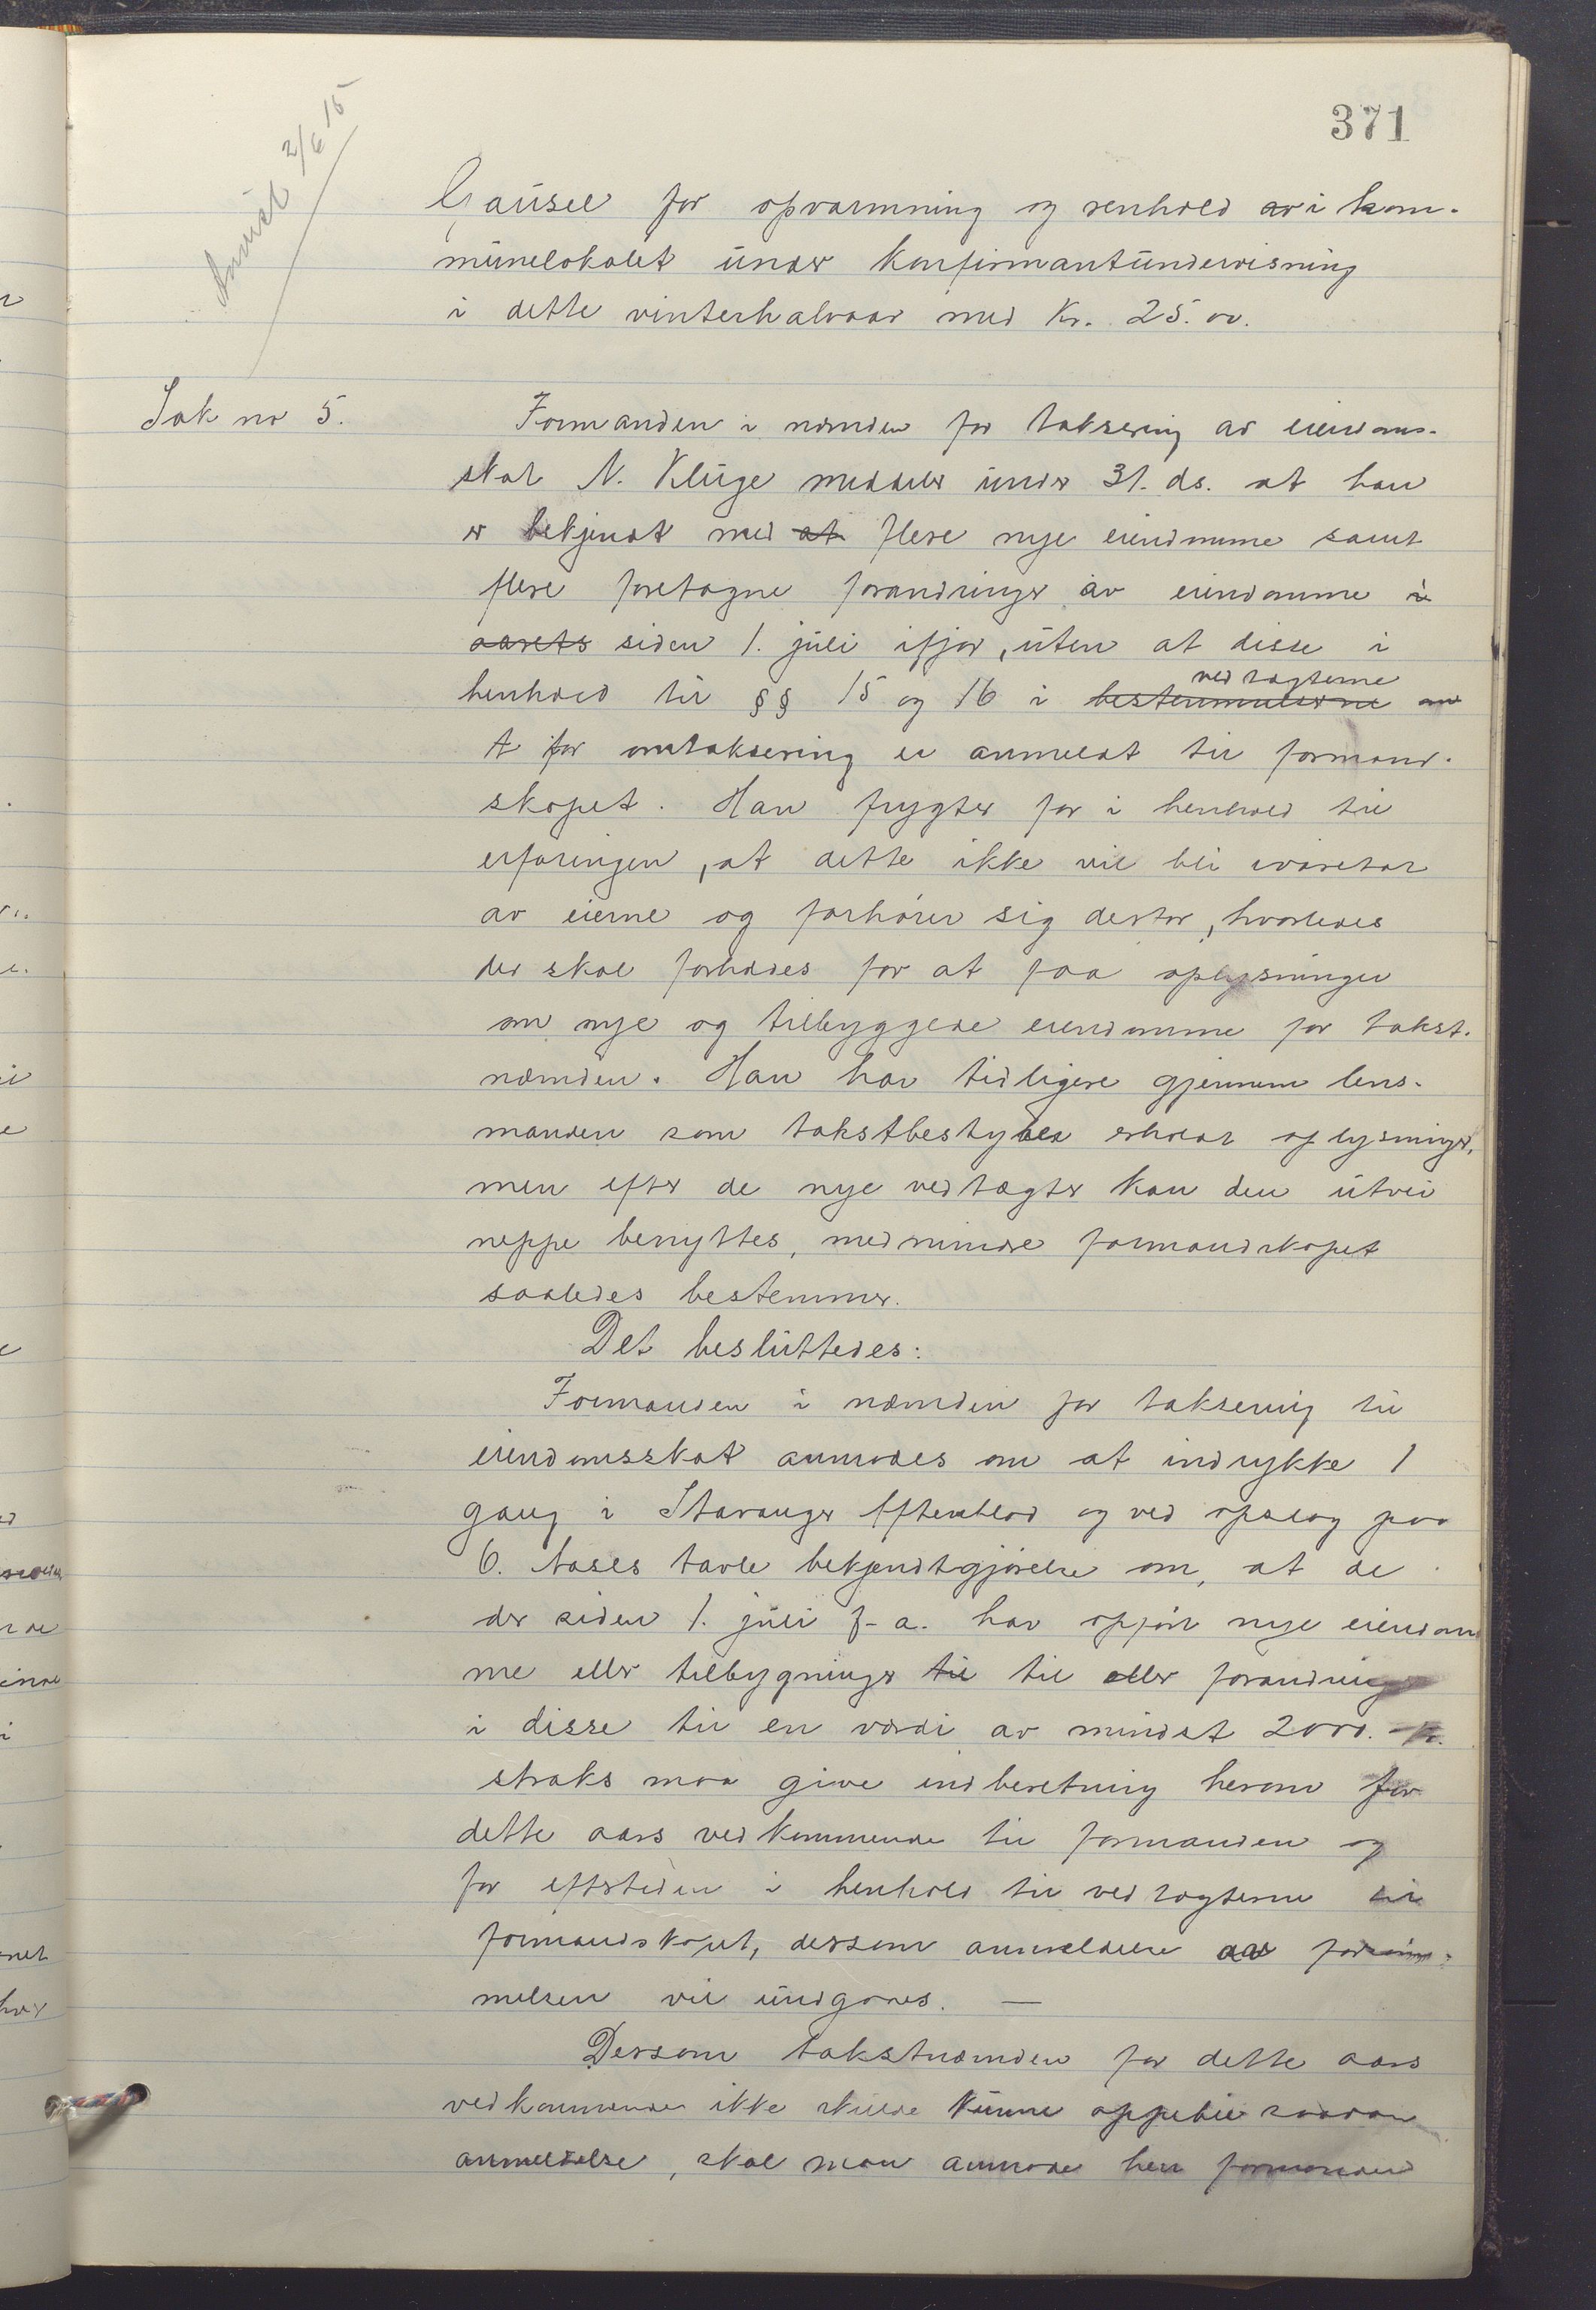 371
Anvist 2/6 15
Gausel for opvarmning og renhold av i kom-
munelokalet under konfirmantundervisning
i dette vinterhalvaar med Kr. 25.00.
Sak no 5.
Formanden i nemnden for taksering av eiendoms-
skat N. Kluge meddeler under 31. ds. at han
er bekjendt med at flere nye eiendomme samt
flere foretagne forandringer av eiendomme i
aarets siden 1. juli ifjor, uten at disse i
vedtægterne
henhold til §§ 15 og 16 i bestemmelserne om
t for omtaksering er anmeldt til formand-
skapet. Han frygter for i henhold til
erfaringen, at dette ikke vil bli ivaretat
av eierne og forhører sig derfor, hvorledes
der skal forholdes for at faa oplysninger
om nye og tilbyggede eiendomme for takst-
nemnden. Han har tidligere gjennem lens-
manden som takstbestyrer erholdt oplysninger,
men efter de nye vedtægter kan den utvei
neppe benyttes, medmindre formandskapet
saaledes bestemmer.
Det besluttedes:
Formanden i nemnden for taksering til
eiendomsskat anmodes om at indrykke 1
gang i Stavanger Aftenblad og ved opslag paa
O. Aases tavle bekjendtgjørelse om, at de
der siden 1. juli f. a. har opført nye eiendom
me eller tilbygninger til til eller forandringer
i disse til en værdi av mindst 2000. kr.
straks maa give indberetning herom for
dette aars vedkommende til formanden og
for eftertiden i henhold til vedtægterne til
formandskapet, dersom anmeldelse av
melsen vil undgaaes. —
Dersom takstnemnden for dette aars
vedkommende ikke skulde kunne oppebie saadan
anmeldelse, skal man anmode herr formanden